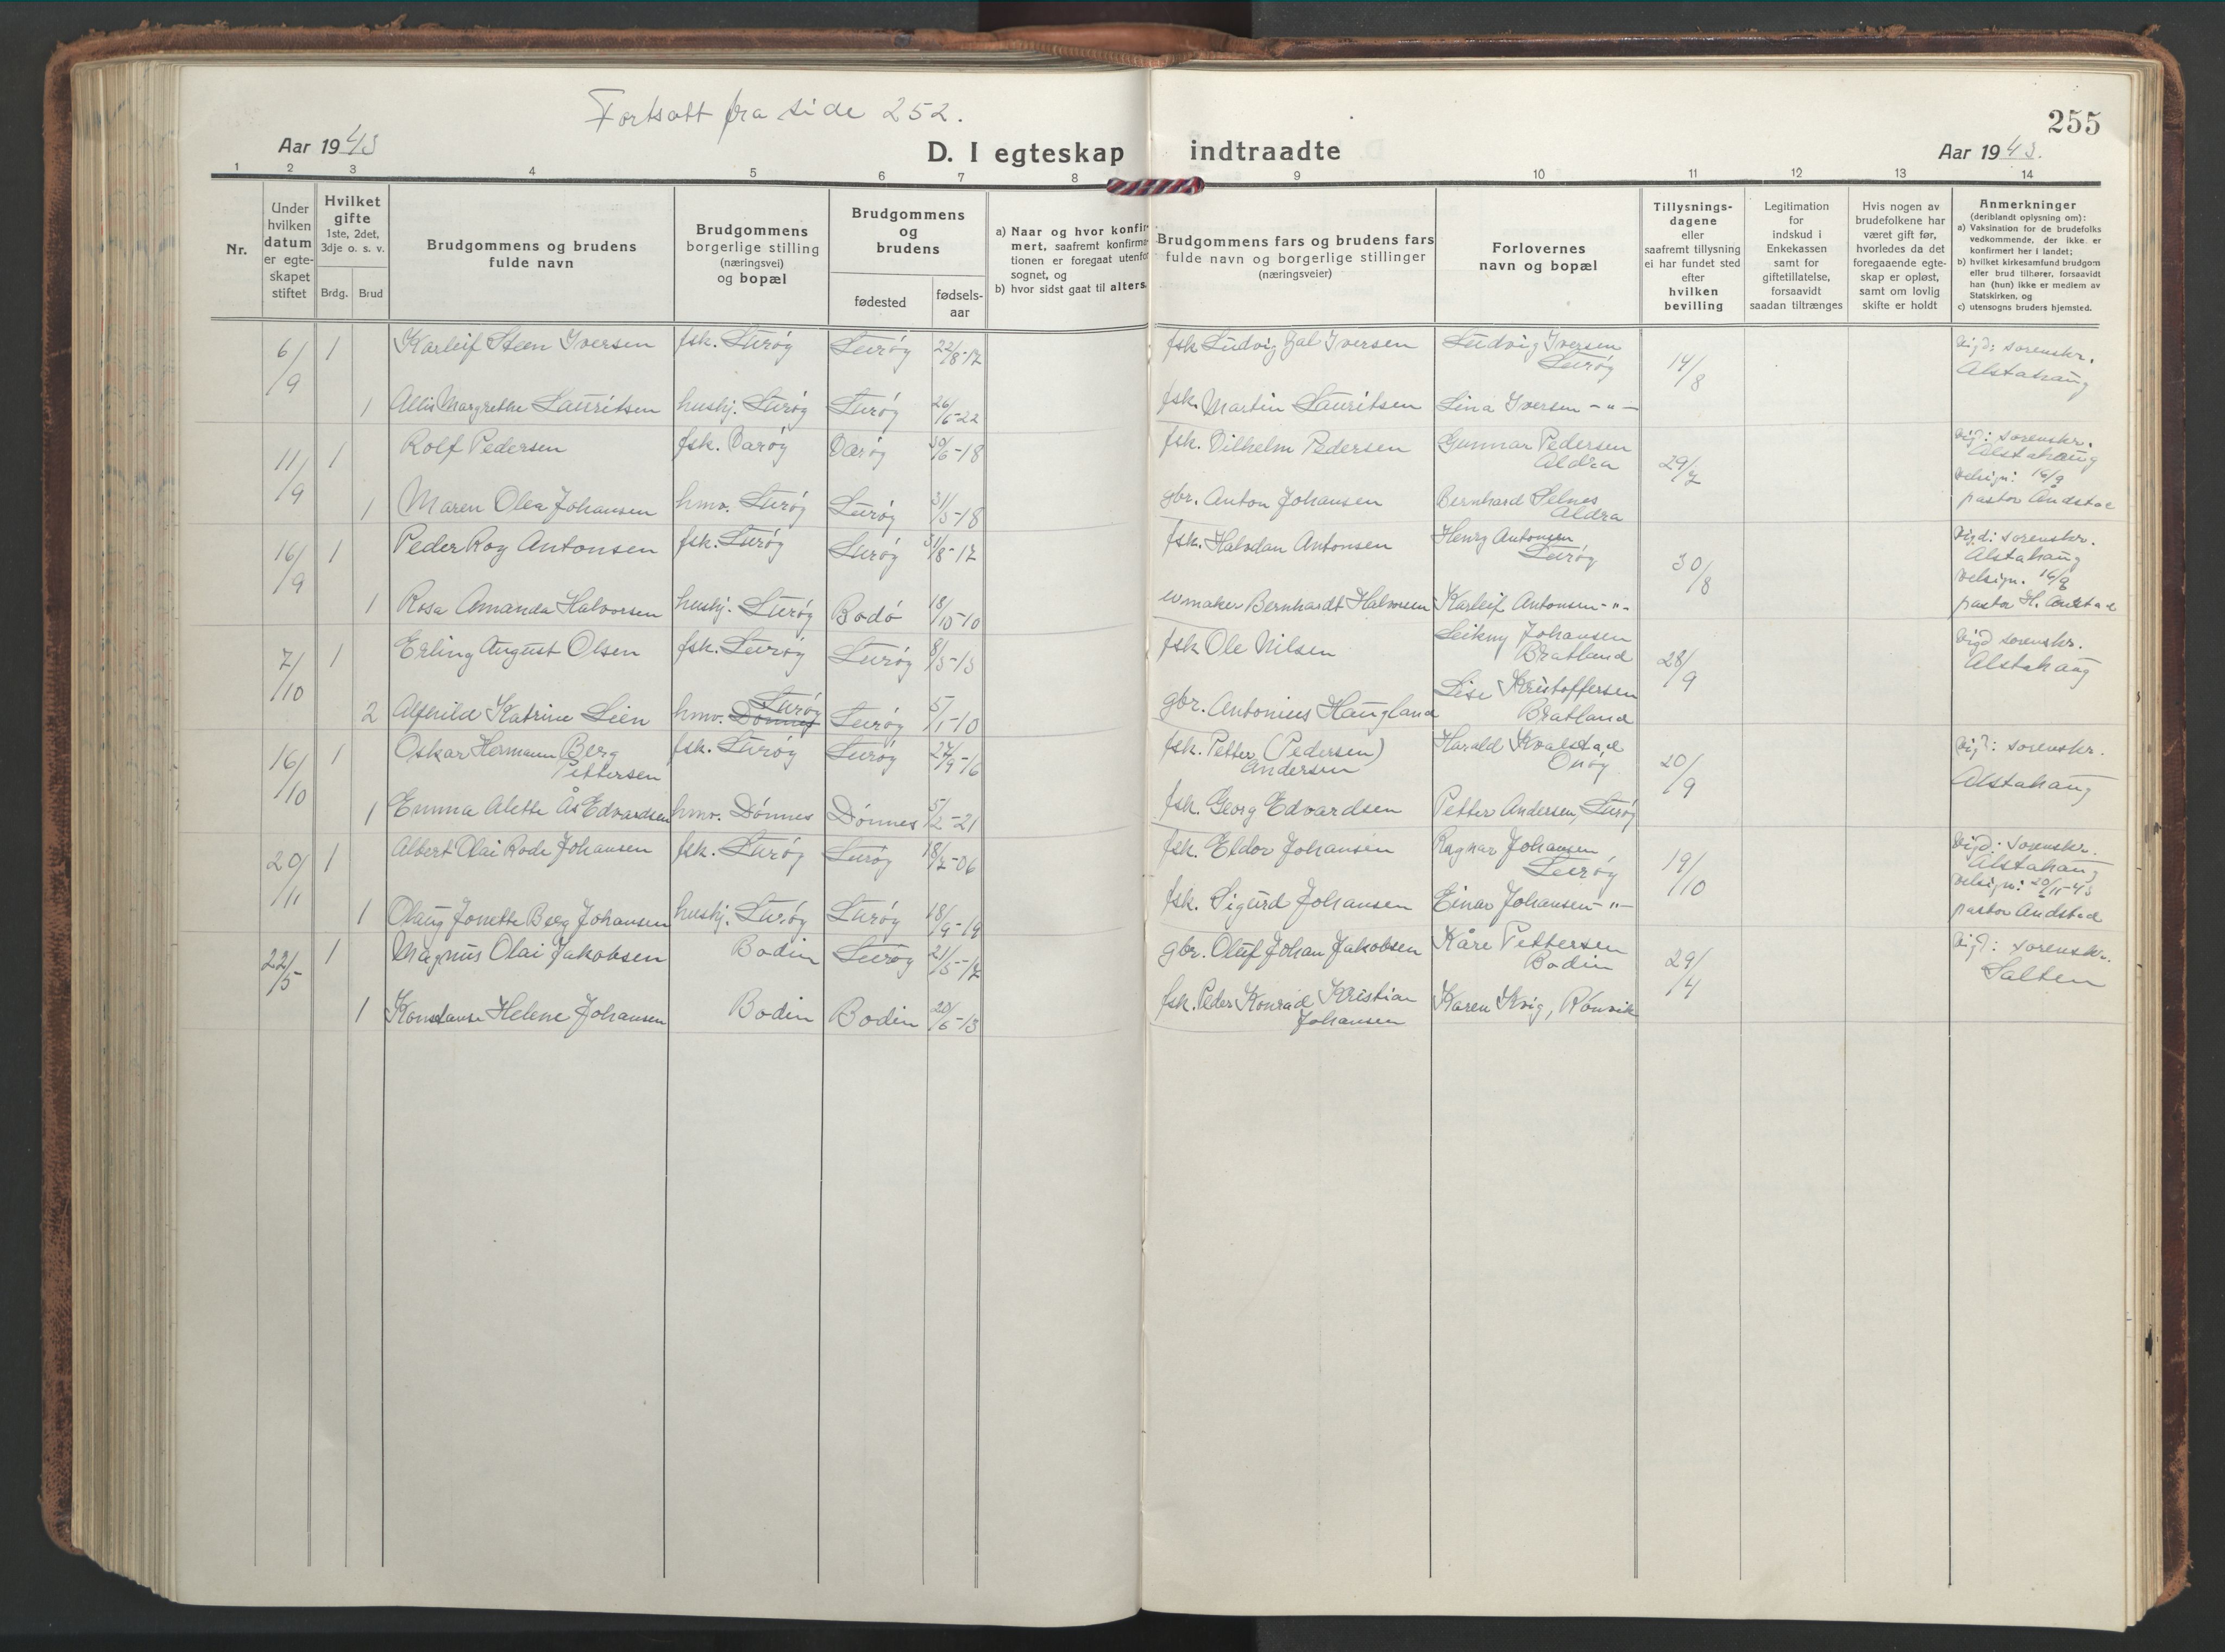 Fortsatt fra side 252.
255
Aar 1943
D. I egteskap indtraadte
Aar 1943.
1 2 3 4 5 6 7 8 9 10 11 12 13 14
Nr.
Under
hvilken
datum
er egte-
skapet
stiftet
Hvilket
gifte
1ste, 2det,
3dje o. s. v.
Brdg. Brud
Brudgommens og brudens
fulde navn
Brudgommens
borgerlige stilling
(næringsvei)
og bopæl
Brudgommens
og
brudens
fødested
fødsels-
aar
a) Naar og hvor konfir-
mert, saafremt konfirma-
tionen er foregaat utenfor
sognet, og
b) hvor sidst gaat til alters.
Brudgommens fars og brudens fars
fulde navn og borgerlige stillinger
(næringsveier)
Forlovernes
navn og bopæl
Tillysnings-
dagene
eller
saafremt tillysning
ei har fundet sted
efter
hvilken
bevilling
Legitimation
for
indskud i
Enkekassen
samt for
giftetillatelse,
forsaavidt
saadan tiltrænges
Hvis nogen av
brudefolkene har
været gift før,
hvorledes da det
foregaaende egte-
skap er opløst,
samt om lovlig
skifte er holdt
Anmerkninger
(deriblandt oplysning om):
a) Vaksination for de brudefolks
vedkommende, der ikke er
konfirmert her i landet;
b) hvilket kirkesamfund brudgom
eller brud tilhører, forsaavidt
han (hun) ikke er medlem av
Statskirken, og
c) utensogns bruders hjemsted.
6/9 1 Karleif Steen Iversen fsk. Lurøy Lurøy 22/8-17 fsk Ludvig Zal Iversen Ludvig Iversen
Lurøy 14/8 Vigd: sorenskr.
Alstahaug
1 Allis Margrethe Lauritsen hushj. Lurøy Lurøy 26/5-22 fsk. Martin Lauritsen Lina Iversen -"-
11/9 1 Rolf Pedersen fsk. Varøy Varøy 30/6-18 fsk. Vilhelm Pedersen Gunnar Pedersen
Aldra 29/7 Vigd: sorenskr.
Alstahaug
velsign: 16/9
1 Maren Olea Johansen hmv. Lurøy Lurøy 31/3-18 gbr. Anton Johansen Bernhard Selnes
Aldra pastor Andstad
16/9 1 Peder Roy Antonsen fsk. Lurøy Lurøy 31/8-17 fsk. Halvdan Antonsen Henry Antonsen
Lurøy 30/8 Vigd: sorenskr.
Alstahaug
velsign. 16/9
1 Rosa Amanda Halvorsen hushj. Lurøy Bodø 18/10-10 urmaker Bernhardt Halvorsen Karleif Antonsen -"- pastor H. Andstad
7/10 1 Erling August Olsen fsk. Lurøy Lurøy 8/3-13 fsk Ole Nilsen Leikny Johansen
Bratland 28/9 Vigd sorenskr.
Alstahaug
2 Alfhild Katrine Lien hmv. Dønnes Lurøy Lurøy 5/1-10 gbr. Antonius Haugland Lise Kristoffersen
Bratland
16/10 1 Oskar Hermann Berg
Pettersen fsk. Lurøy Lurøy 27/9-16 fsk. Petter (Pedersen)
Andersen Harald Kvalstad
Onøy 20/9 Vigd: sorenskr.
Alstahaug
1 Emma Alette Ås Edvardsen hmv. Dønnes Dønnes 5/2-21 fsk. Georg Edvardsen Petter Andersen, Lurøy
20/11 1 Albert Olai Rode Johansen fsk. Lurøy Lurøy 18/7-06 fsk. Eldor Johansen Ragnar Johansen
Lurøy 19/10 Vigd: sorenskr.
Alstahaug
velsign: 20/11-43
1 Olaug Jonette Berg Johansen hushj. Lurøy Lurøy 18/9-19 fsk. Sigurd Johansen Einar Johansen -"- pastor Andstad
22/5 1 Magnus Olai Jakobsen Bodin Lurøy 21/5-17 gbr. Oluf Johan Jakobsen Kåre Pettersen
Bodin 29/4 Vigd: sorenskr.
Salten
1 Konstanse Helene Johansen Bodin Bodin 20/6-13 fsk. Peder Konrad Kristian
Johansen Karen Kvig, Rønvik